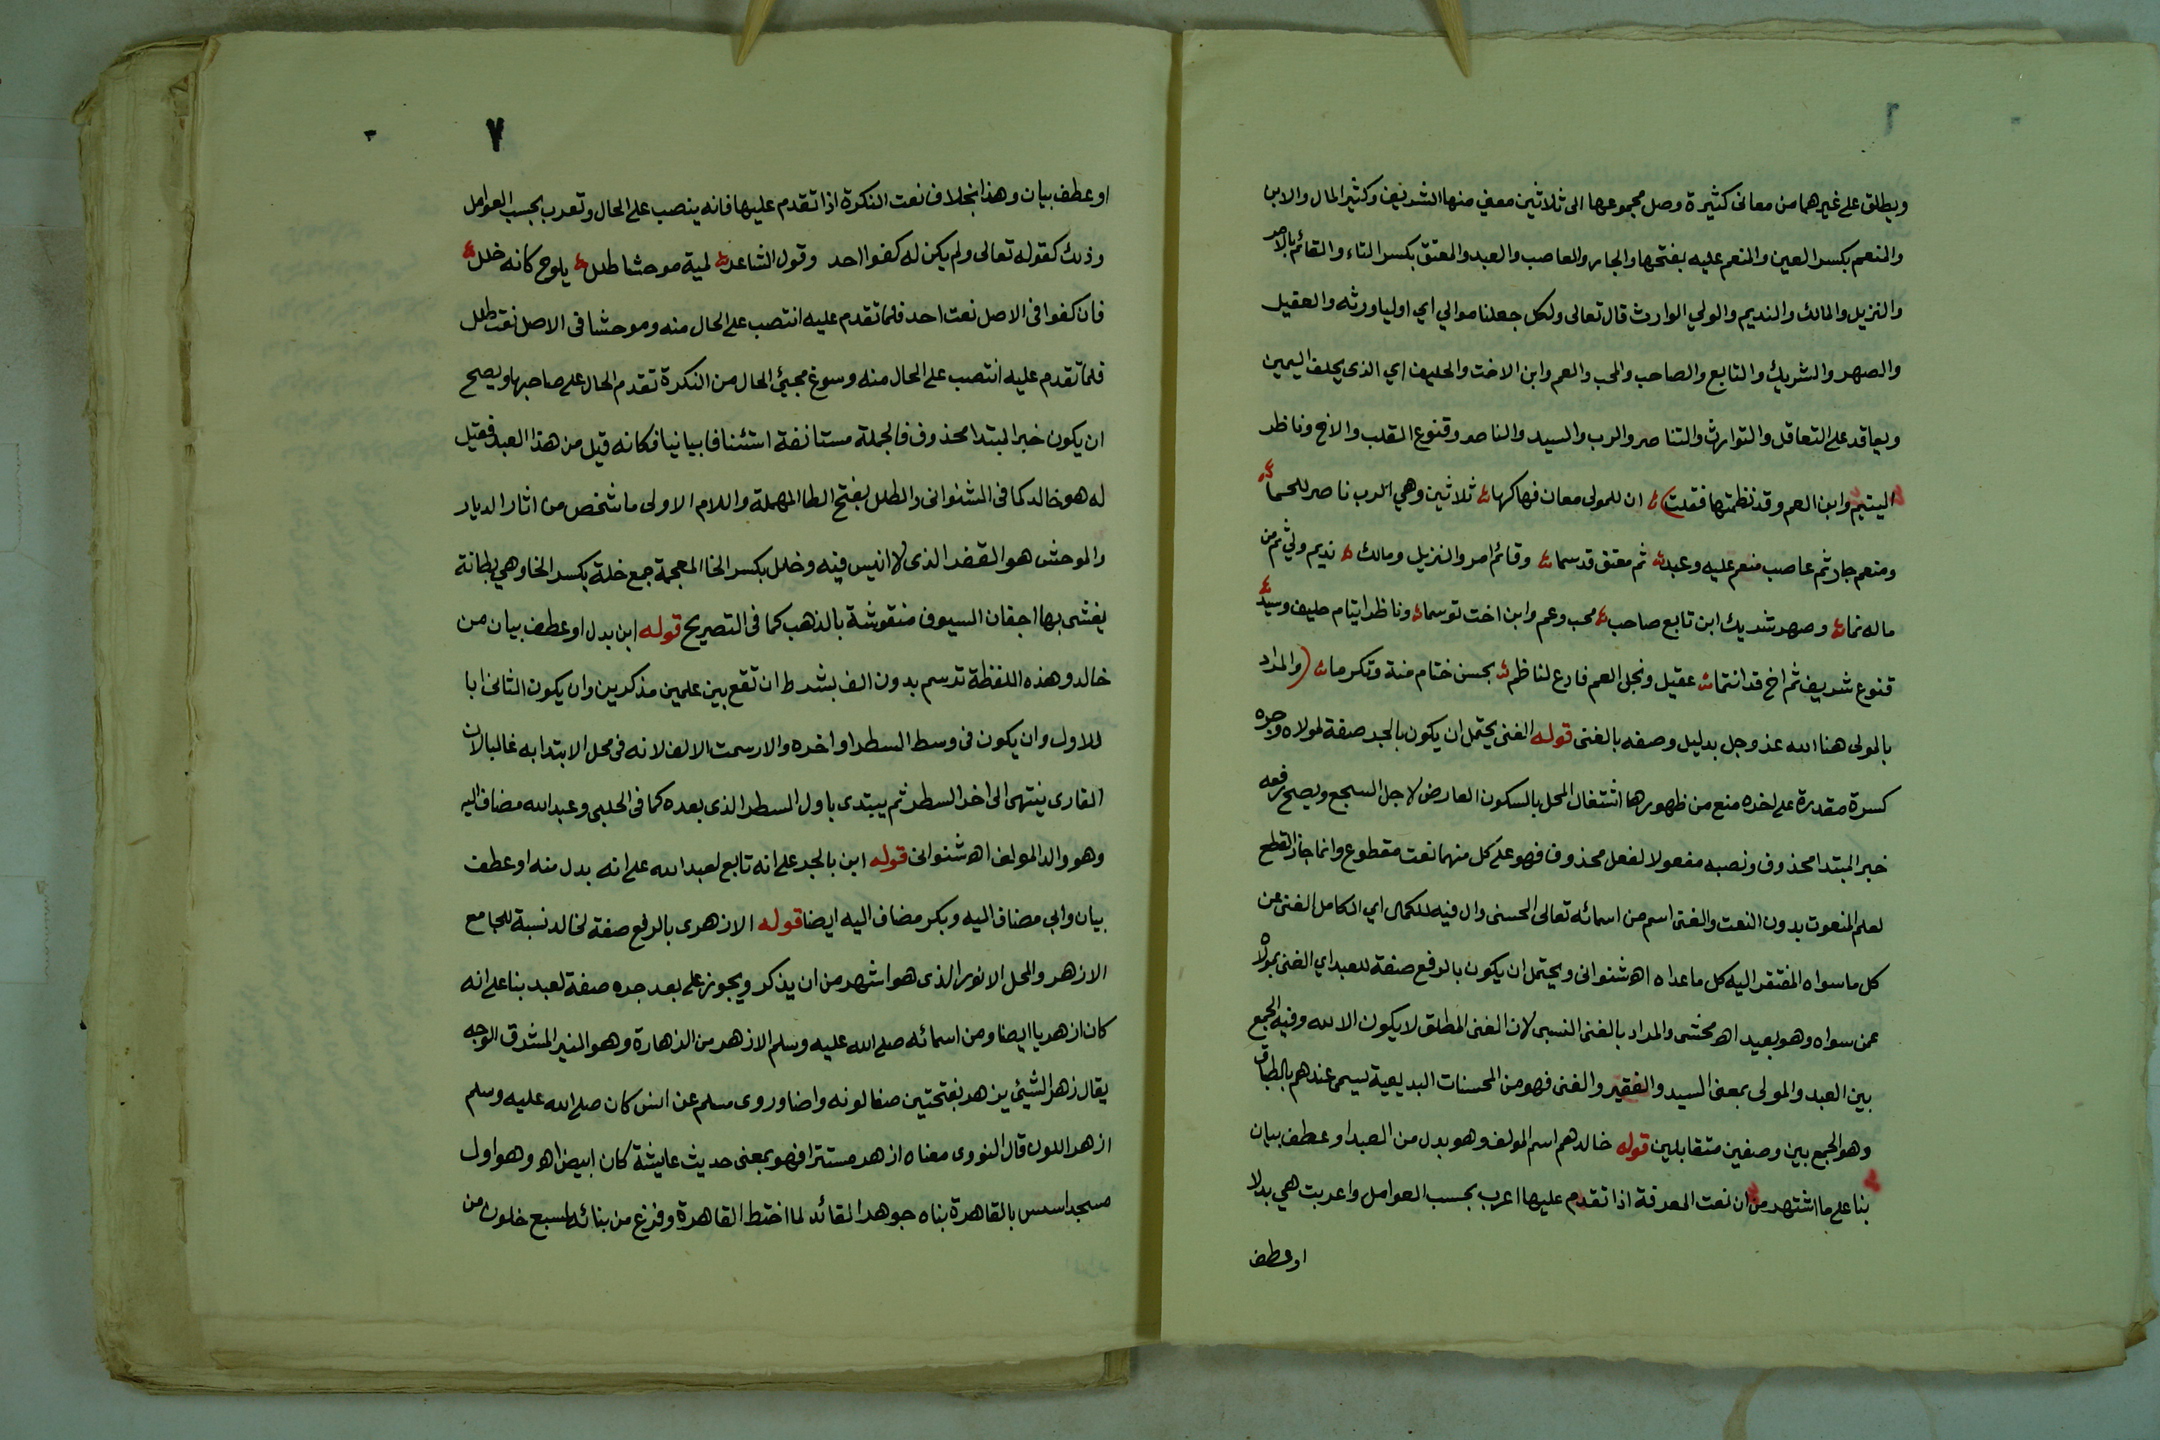 ٦
ويطلق على غيرهما من معانى كثيرة وصل مجموعها الى ثلاثين معني منها الشريف وكثير المال والابن
والمنعم بكسر العين والمنعم عليه بفتحها والجار والعاصب والعبد والمعتق بكسر التاء والقائم بالامر
والنزيل والمالك والنديم والولي الوارث قال تعالى ولكل جعلنا موالي اي اوليا ورثه والعقيل
والصهر والشريك والتابع والصاحب والمحب والعم وابن الاخت والحليف اي الذى يحلف اليمين
ويعاقد على التعاقل والتوارث والتناصر والرب والسيد والناصر وقنوع القلب والاخ وناظر
اليتيم وابن العم وقد نظمتها فقلت ان للمولى معان فهاكها ثلاثين وهي الرب ناصر للحما
ومنعم جار ثم عاصب منعم عليه وعبد ثم معتق قد سما وقائم امر والنزيل ومالك نديم ولي ثم من
ماله نما وصهر شريك ابن تابع صاحب محب وعم وابن اخت توسما وناظر ايتام حليف وسيد
قنوع شريف ثم اخ قد انتما عقيل ونجل العم فادع لناظم بحسن ختام منة وتكرما والمراد
بالمولى هنا الله عز وجل بدليل وصفه بالغنى قوله الغنى يحتمل ان يكون بالجر صفة لمولاه وجره
كسرة مقدرة على اخره منع من ظهورها اشتغال المحل بالسكون العارض لاجل السجع ويصح رفعه
خبر المبتدا محذوف ونصبه مفعولا لفعل محذوف فهو على كل منهما نعت مقطوع وانما جاز القطع
لعلم المنعوت بدون النعت والغنى اسم من اسمائه تعالى الحسنى وال فيه للكمال اي الكامل الغنى عن
كل ما سواه المفتقر اليه كل ما عداه اه شنوانى ويحتمل ان يكون بالرفع صفة للعبد اي الغنى بمولاه
عمن سواه وهو بعيد اه محشى والمراد بالغنى النسبى لان الغنى المطلق لا يكون الا لله وفيه الجمع
بين العبد والمولى بمعنى السيد والفقير والغنى فهو من المحسنات البديعية يسمى عندهم بالطباق
وهو الجمع بين وصفين متقابلين قوله خالد هم اسم المولف وهو بدل من العبد او عطف بيان
بنا على ما اشتهر من ان نعت المعرفة اذا تقدم عليها اعرب بحسب العوامل واعربت هي بدلا
او عطف
٧
او عطف بيان وهذا بخلاف نعت النكرة اذا تقدم عليها فانه ينصب على الحال وتعرب بحسب العوامل
وذلك كقوله تعالى ولم يكن له كفوا احد وقول الشاعر لمية موحشا طلل يلوح كانه خلل
فان كفوا فى الاصل نعت احد فلما تقدم عليه انتصب على الحال منه وموحشا فى الاصل نعت طلل
فلما تقدم عليه انتصب على الحال منه وسوغ مجيئ الحال من النكرة تقدم الحال على صاحبها ويصح
ان يكون خبر المبتدا محذوف فالجملة مستانفة استئنافا بيانيا فكانه قيل من هذا العبد فقيل
له هو خالد كما فى الشنوانى والطلل بفتح الطا المهملة واللام الاولى ما شخص من اثار الديار
والموحش هو القفر الذى لا انيس فيه وخلل بكسر الخا المعجمة جمع خلة بكسر الخا وهي بطانة
يغشى بها اجفان السيوف منقوشة بالذهب كما فى التصريح قوله ابن بدل او عطف بيان من
خالد وهذه اللفظة ترسم بدون الف بشرط ان تقع بين علمين مذكرين وان يكون الثانى ابا
للاول وان يكون فى وسط السطر او اخره والا رسمت الالف لانه فى محل الابتدا به غالبا لان
القارى ينتهى الى اخر السطر ثم يبتدى باول السطر الذى بعده كما فى الحلبى وعبد الله مضاف اليه
وهو والد المولف اه شنوانى قوله ابن بالجر على انه تابع لعبد الله على انه بدل منه او عطف
بيان وابى مضاف اليه وبكر مضاف اليه ايضا قوله الازهرى بالرفع صفة لخالد نسبة للجامع
الازهر والمحل الانور الذى هو اشهر من ان يذكر ويجوز على بعد جره صفة لعبد بنا على انه
كان ازهريا ايضا ومن اسمائه صلى الله عليه وسلم الازهر من الزهارة وهو المنير المشرق الوجه
يقال زهر الشيئ يزهر بفتحتين صفا لونه واضا وروى مسلم عن انس كان صلى الله عليه وسلم
ازهر اللون قال النووى معناه ازهر مستنرا فهو بمعنى حديث عايشة كان ابيض اه وهو اول
مسجد اسس بالقاهرة بناه جوهر القائد لما اختط القاهرة وفرغ من بنائه لسبع خلون من